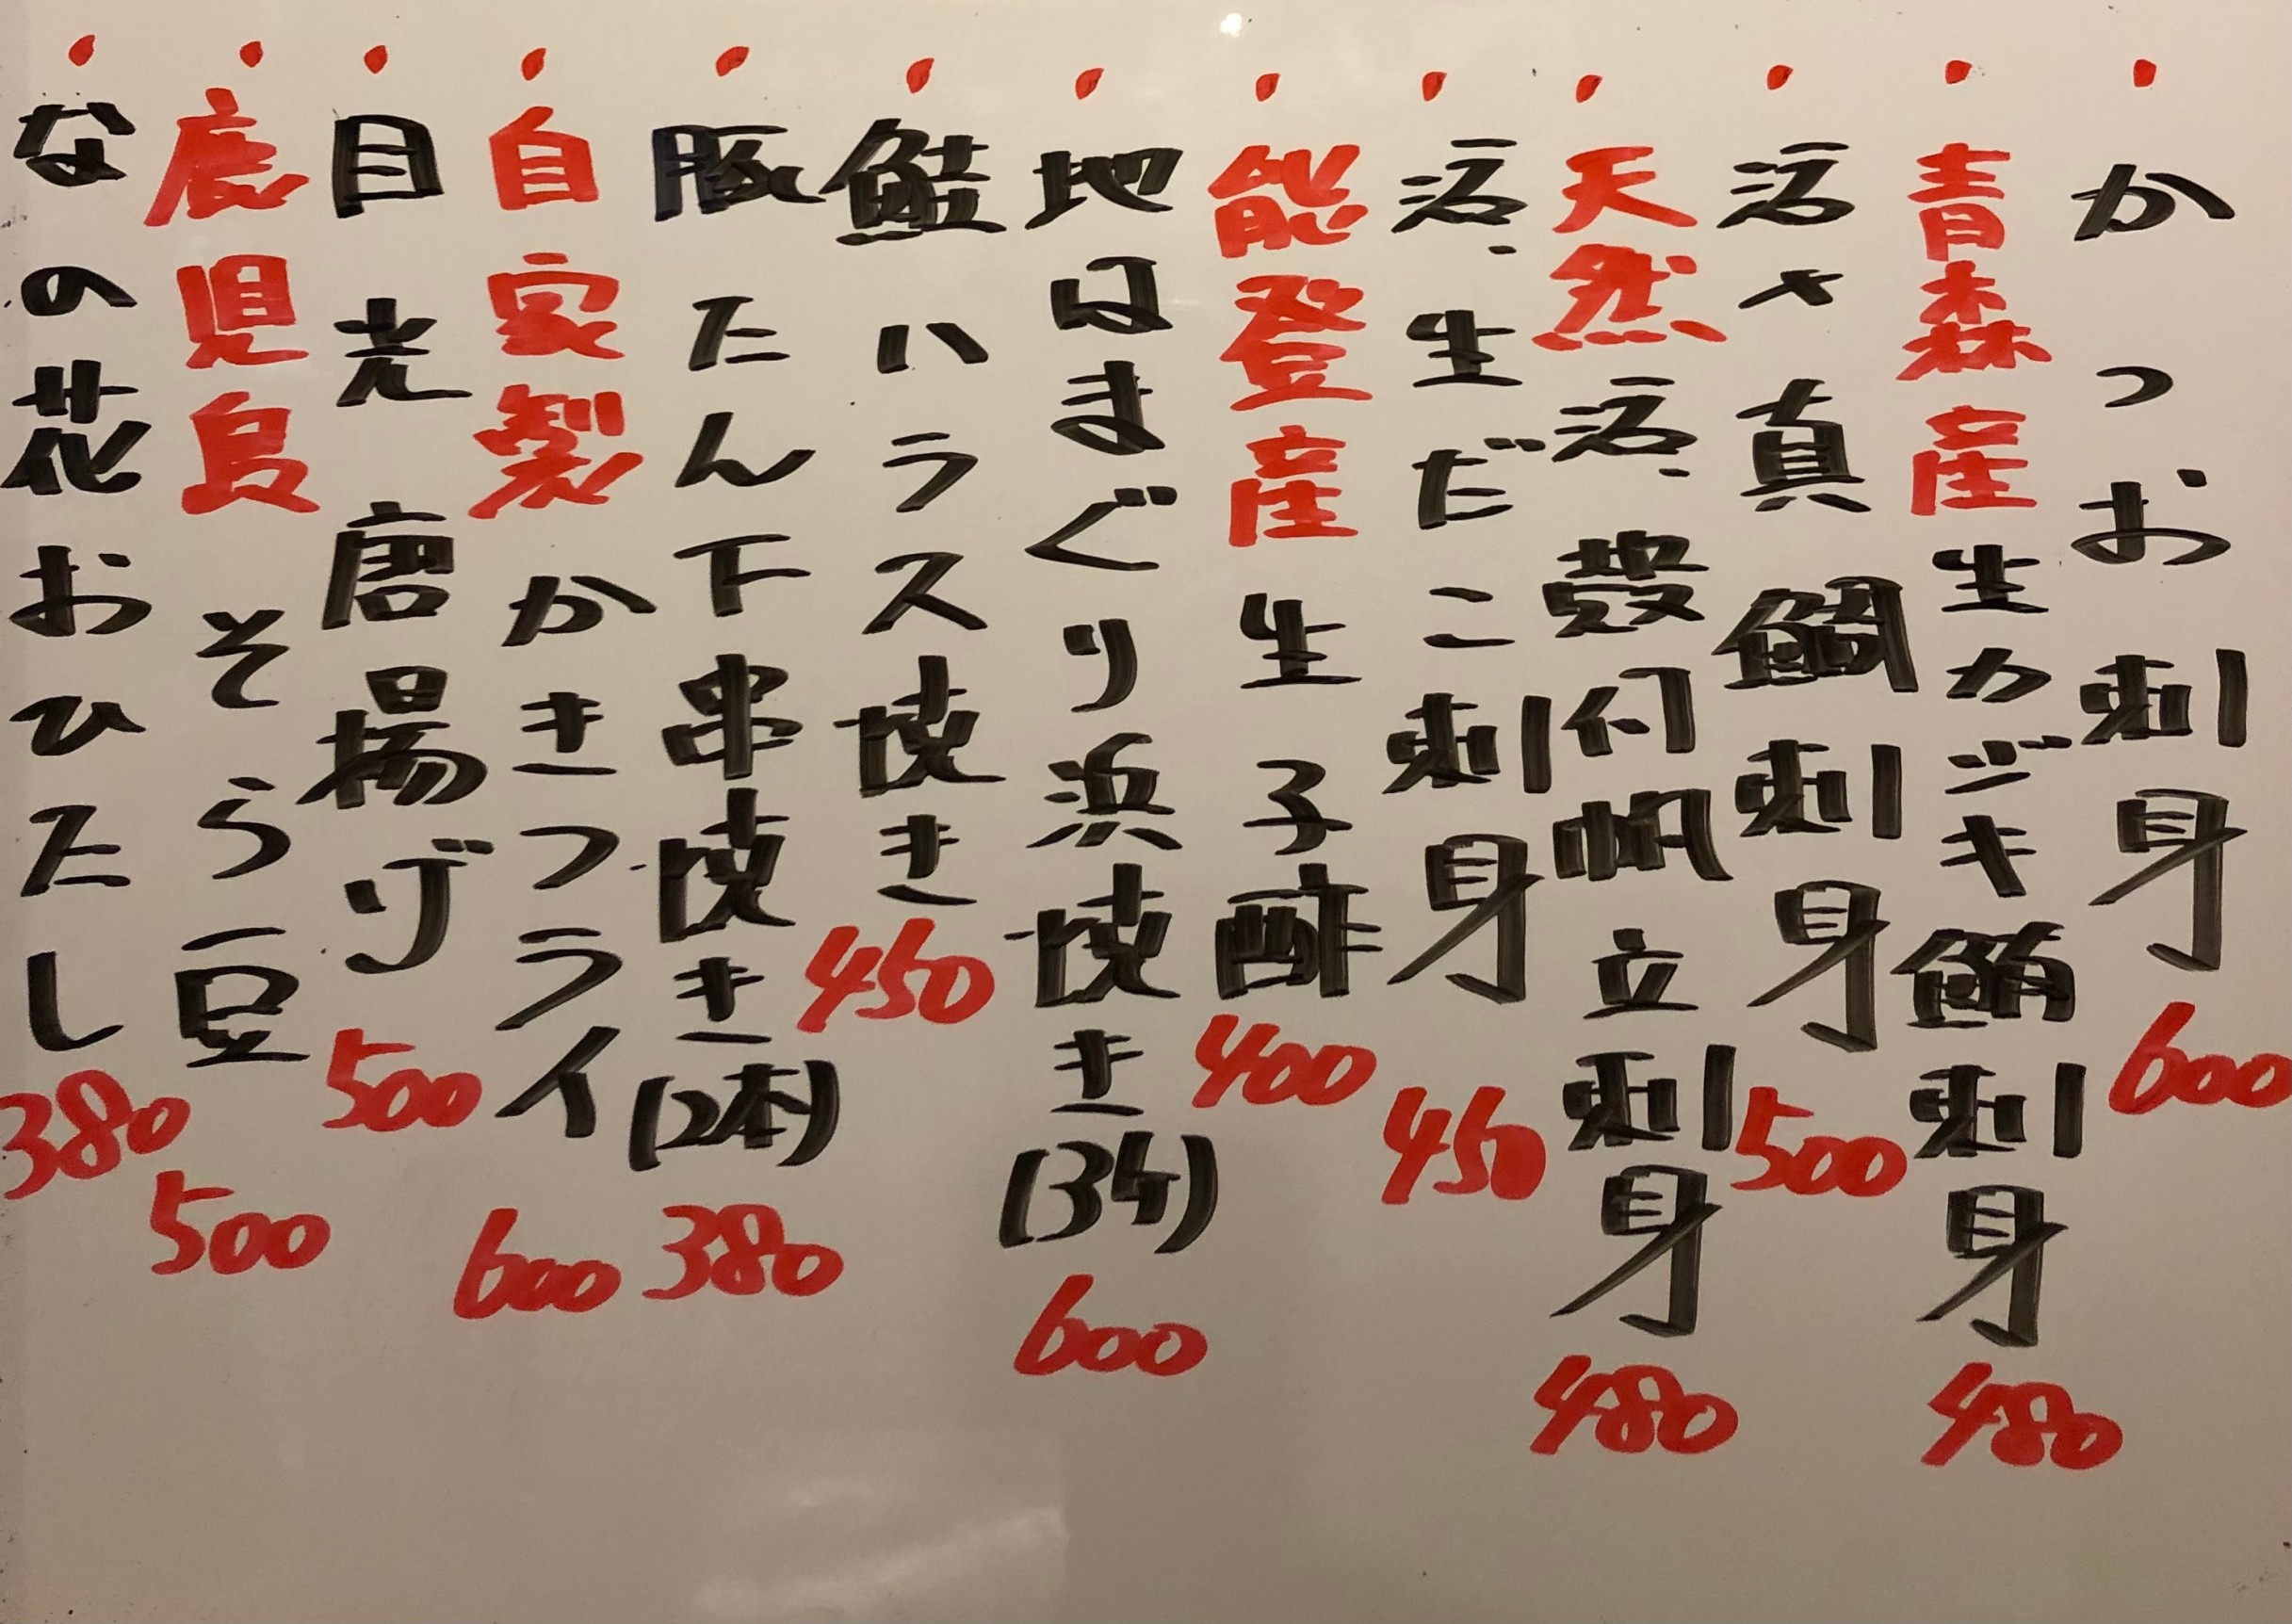 かつお刺身 600
青森産生カジキ鮪刺身 480
活〆真鯛刺身 500
天然活殻付帆立刺身 480
活生だこ刺身 450
能登産生子酢 400
地はまぐり浜焼き(3ケ) 600
鮭ハラス焼き 450
豚たん下串焼き(2本) 380
自家製かきフライ 600
目光唐揚げ 500
鹿児島そら豆 500
なの花おひたし 380